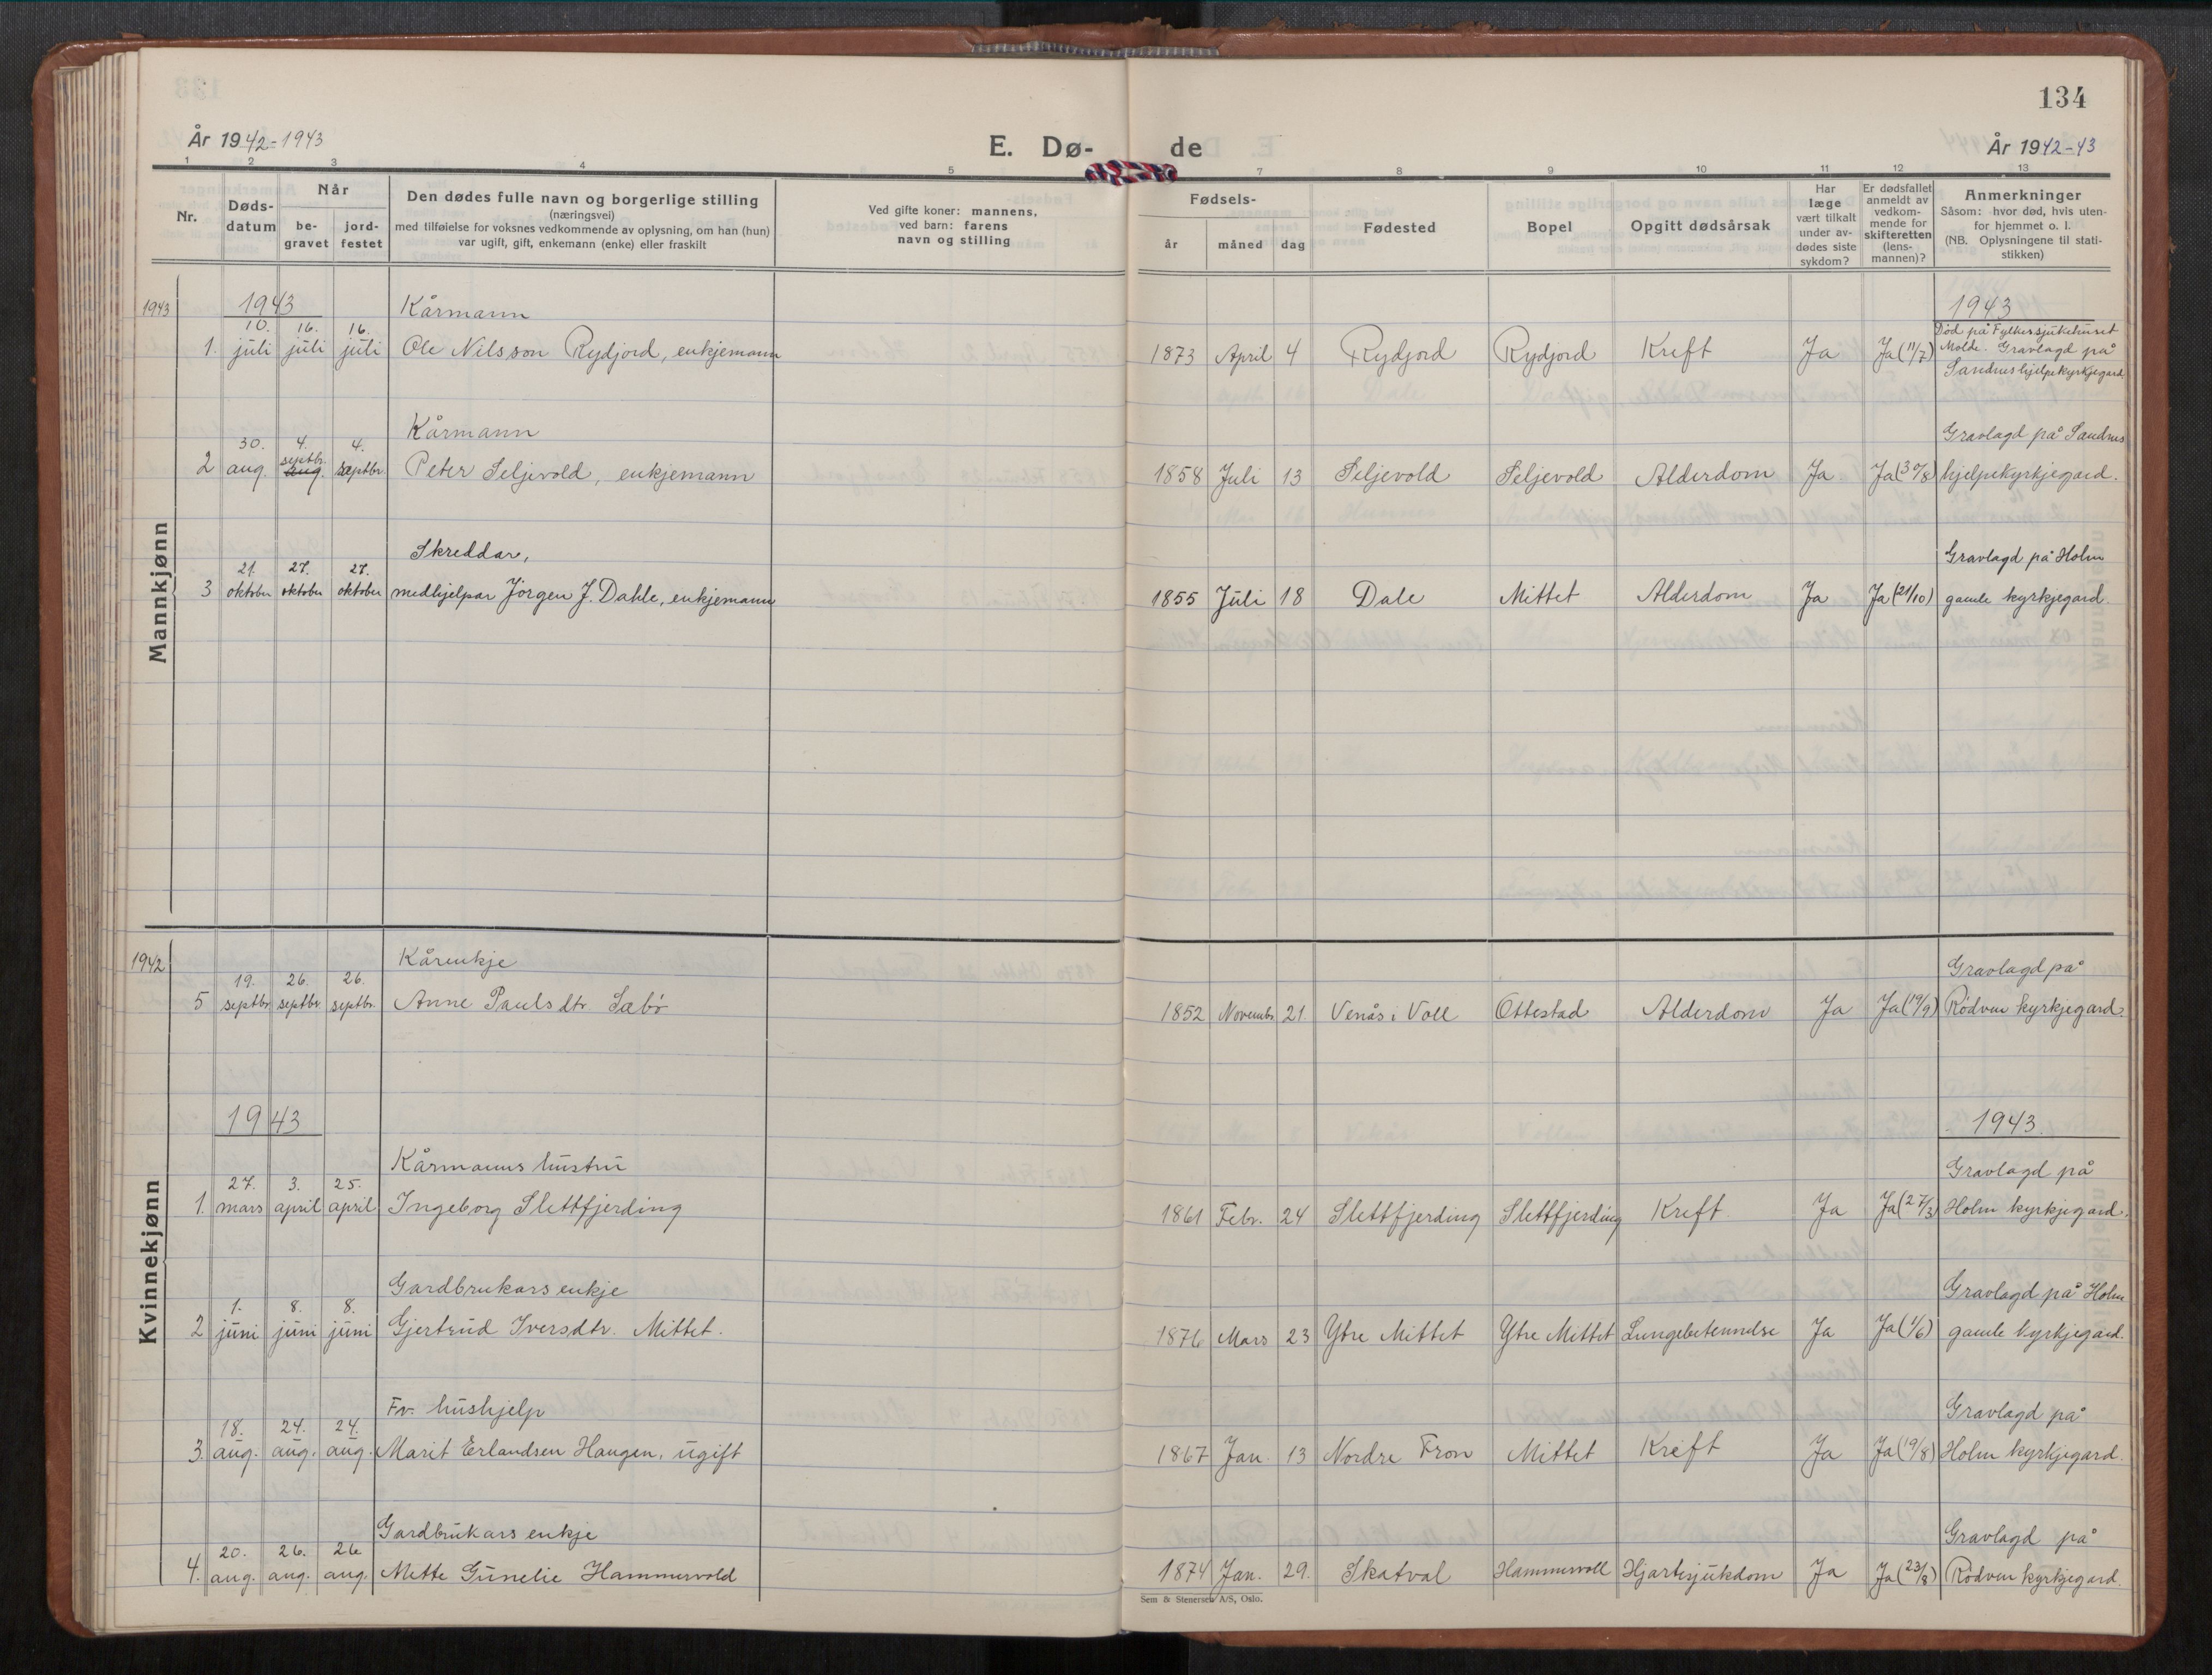 134
År 1942-1943
E. Dø- de
År 1942-43
1 2 3 4 5 7 8 9 10 11 12 13
Nr.
Døds-
datum
Når
be-
gravet
jord-
festet
Den dødes fulle navn og borgerlige stilling
(næringsvei)
med tilføielse for voksnes vedkommende av oplysning, om han (hun)
var ugift, gift, enkemann (enke) eller fraskilt
Ved gifte koner: mannens,
ved barn: farens
navn og stilling
Fødsels-
år måned dag
Fødested
Bopel
Opgitt dødsårsak
Har
læge
vært tilkalt
under av-
dødes siste
sykdom?
Er dødsfallet
anmeldt av
vedkom-
mende for
skifteretten
(lens-
mannen)?
Anmerkninger
Såsom: hvor død, hvis uten-
for hjemmet o. l.
(NB. Oplysningene til stati-
stikken)
Mannkjønn
1943 1943 Kårmann 1943
10. 16. 16. Død på Fylkessjukehuset
1. juli juli juli Ole Nilsson Rydjord, enkjemann 1873 April 4 Rydjord Rydjord Kreft Ja Ja (11/7) Molde. Gravlagd på
Sandnes hjelpekyrkjegard.
Kårmann Gravlagd på Sandnes
30. 4. 4.
septbr.
2 aug. aug. septbr. Peter Seljevold, enkjemann 1858 Juli 13 Seljevold Seljevold Alderdom Ja Ja (30/8) hjelpekyrkjegard.
Skreddar, Gravlagd på Holm
21. 27. 27.
3 oktober oktober oktober medhjelpar Jörgen J. Dahle, enkjemann 1855 Juli 18 Dale Mittet Alderdom Ja Ja (21/10) gamle kyrkjegard.
Kvinnekjønn
1942 Kårenkje Gravlagd på
19. 26. 26.
5 septbr. septbr. septbr. Anne Paulsdtr. Sæbö 1852 Novembr. 21. Venås i Voll Ottestad Alderdom Ja Ja (19/9) Rödven kyrkjegard.
1943 1943.
Kårmanns hustru Gravlagd på
27. 3. 25.
1. mars april april Ingeborg Slettfjerding 1861 Febr. 24 Slettfjerding Slettfjerding Kreft Ja Ja (27/3) Holm kyrkjegard.
Gardbrukars enkje Gravlagd på Holm
1. 8. 8.
2 juni juni juni Gjertrud Iversdtr. Mittet. 1876 Mars 23 Ytre Mittet Ytre Mittet Lungebetenndse Ja Ja (1/6) gamle kyrkjegard.
Fv. hushjelp Gravlagd på
18. 24. 24.
3. aug. aug. aug. Marit Erlandsen Haugen, ugift 1867 Jan. 13 Nordre Fron Mittet Kreft Ja Ja (19/8) Holm kyrkjegard.
Gardbrukars enkje Gravlagd på
20. 26. 26
4. aug. aug. aug. Mette Gunelie Hammervold 1874 Jan. 29. Skatval Hammervoll Hjartesjukdom Ja Ja (23/8) Rödven kyrkjegard.
Sem & Stenersen A/S, Oslo.